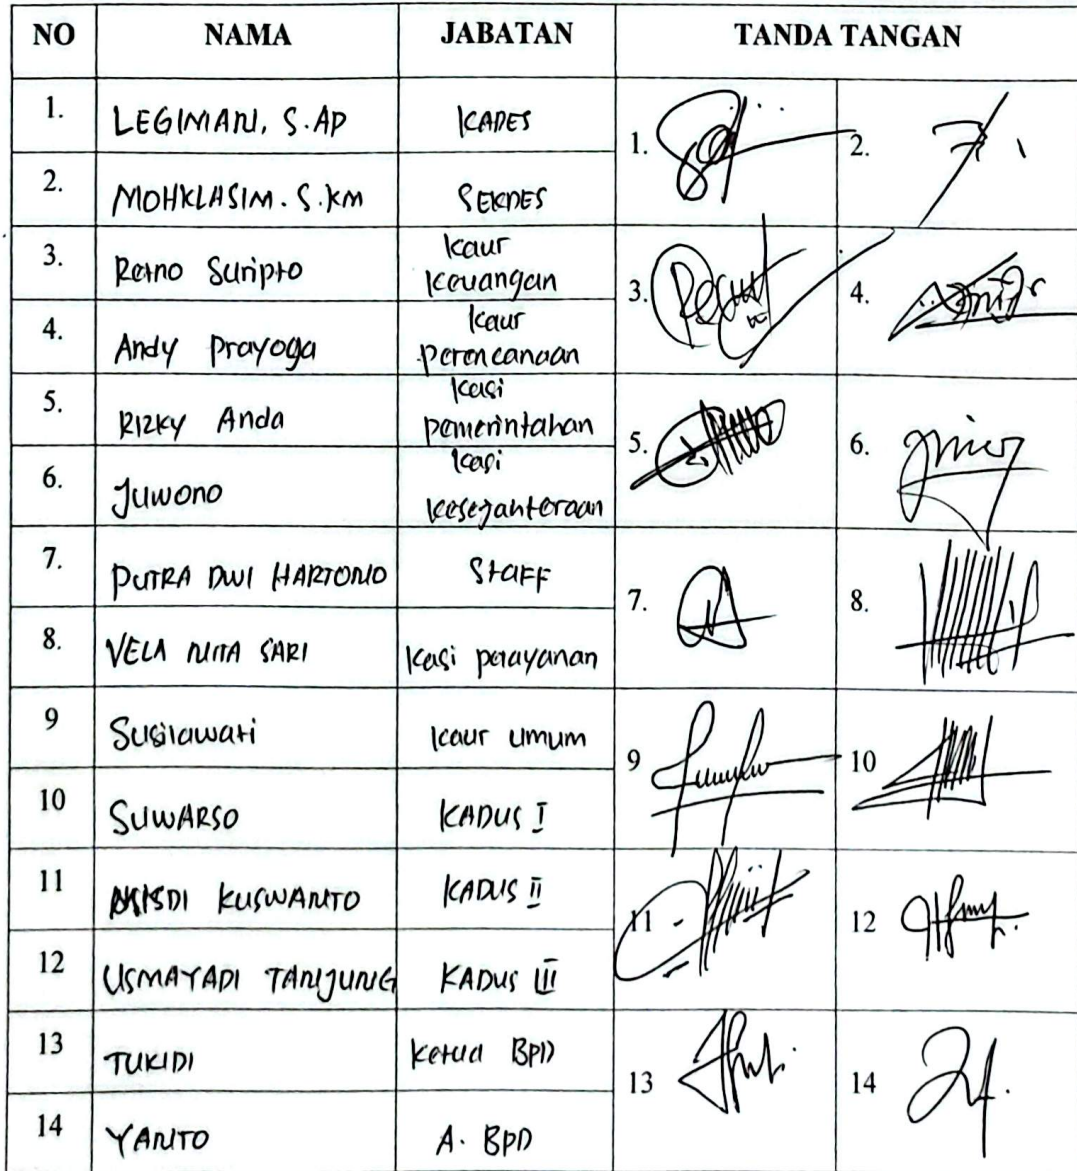 NO NAMA JABATAN TANDA TANGAN
1. LEGIMAN, S.AP KADES 1. 2.
2. MOHKLASIM. S.KM SEKDES
3. Retno Suripto Kaur Keuangan 3. 4.
4. Andy Prayoga Kaur perencanaan
5. Rizky Anda Kasi pemerintahan 5. 6.
6. Juwono Kasi Kesejahteraan
7. PUTRA DWI HARTONO Staff 7. 8.
8. VELA NITA SARI Kasi perayanan
9 Susilawati Kaur umum 9 10
10 SUWARSO KADUS I
11 KUSWANTO KADUS II 11 12
12 USMAYADI TANJUNG KADUS III
13 TUKIDI Ketua BPD 13 14
14 YANTO A. BPD